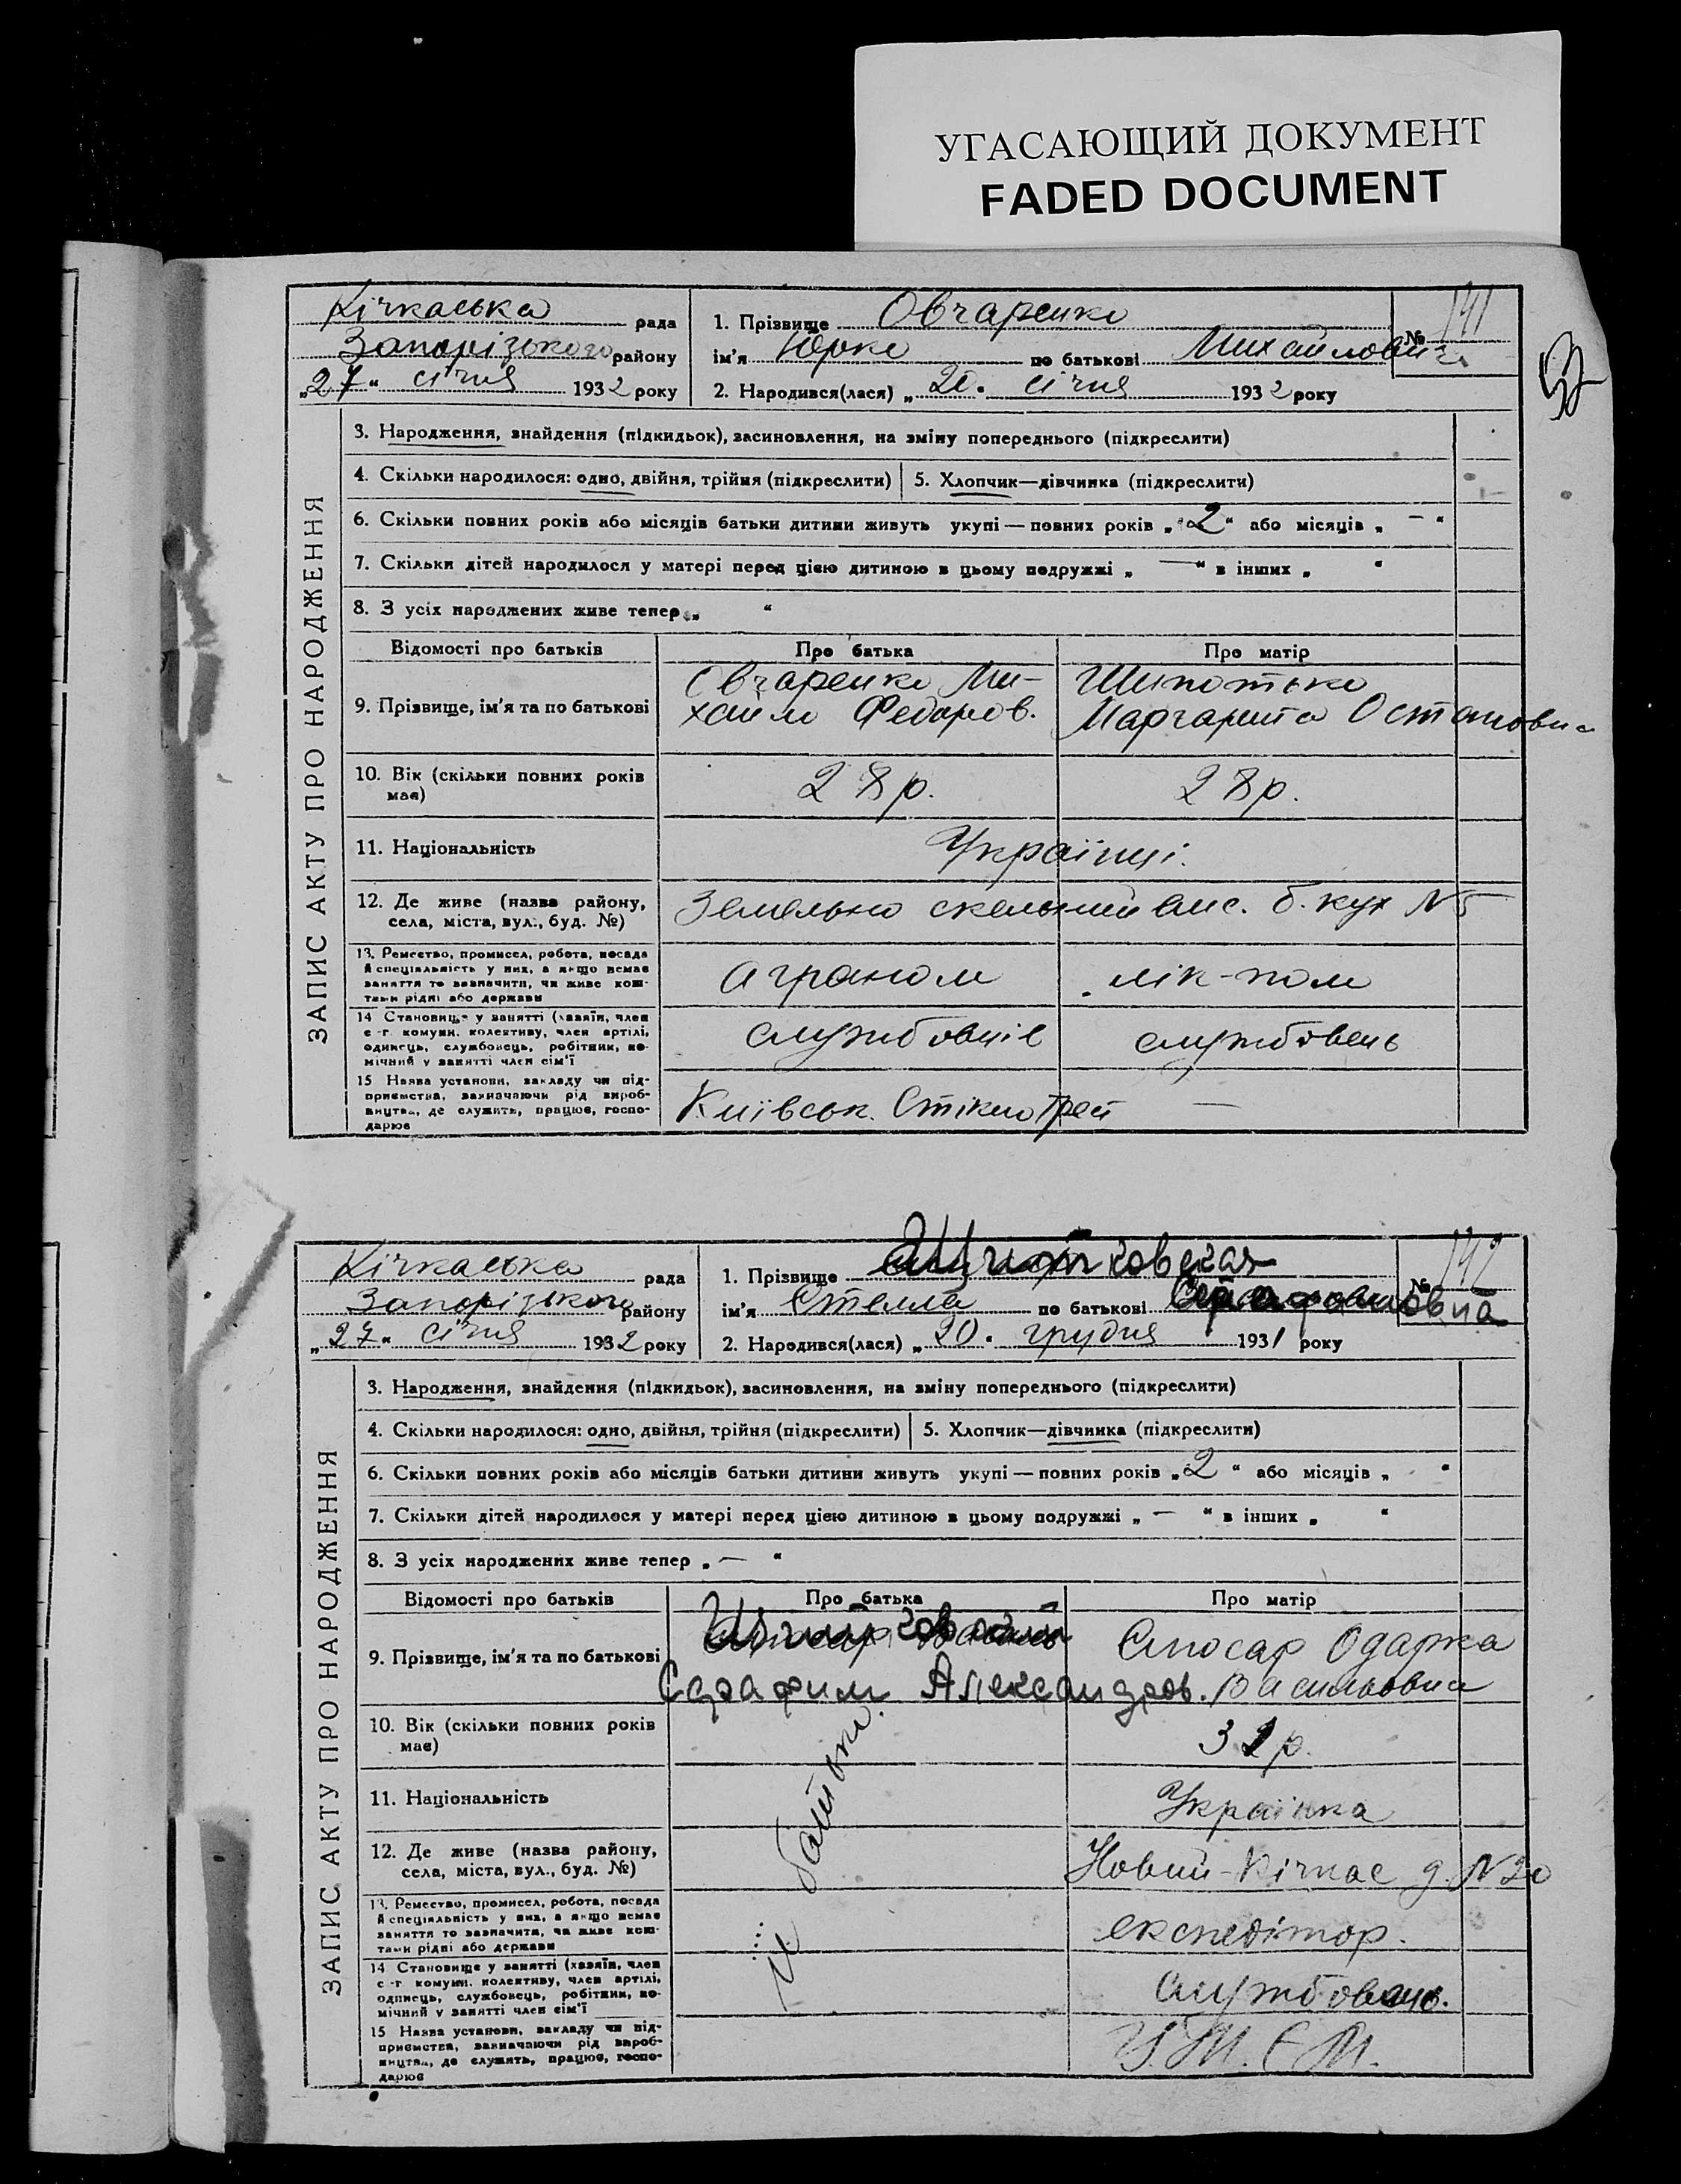 УГАСАЮЩИЙ ДОКУМЕНТ
FADED DOCUMENT
Кічкаська рада
Запорізького району
„27“ січня 1932 року
1. Прізвище Овчаренко
№ 141
ім'я Юрко по батькові Михайлович
2. Народився(лася) „20“ січня 1932 року
52
ЗАПИС АКТУ ПРО НАРОДЖЕННЯ
3. Народження, знайдення (підкидьок), засиновлення, на зміну попереднього (підкреслити)
4. Скільки народилося: одно, двійня, трійня (підкреслити) 5. Хлопчик—дівчинка (підкреслити)
6. Скільки повних років або місяців батьки дитини живуть укупі — повних років „2“ або місяців „—“
7. Скільки дітей народилося у матері перед цією дитиною в цьому подружжі „—“ в інших „ “
8. З усіх народжених живе тепер „ “
Відомості про батьків Про батька Про матір
9. Прізвище, ім'я та по батькові
Овчаренко Ми-
хайло Федоров.
Маргарита
10. Вік (скільки повних років має) 28 р. 28 р.
11. Національність Українці.
12. Де живе (назва району, села, міста, вул., буд. №) б. кух N 5
13. Ремество, промисел, робота, посада й спеціяльність у них, а якщо немає заняття то зазначити, чи живе коштами рідні або держави
аграном лік-пом
14 Становище у занятті (хазяїн, член с-г. комуни, колективу, член артілі, одинець, службовець, робітник, помічний у занятті член сім'ї
службовців службовець
15 Назва установи, закладу чи підприємства, зазначаючи рід виробництва, де служить, працює, господарює
Київськ. —
Кічкаська рада
Запорізького району
„27“ січня 1932 року
1. Прізвище
№ 142
ім'я Стелла по батькові
2. Народився(лася) „20“ грудня 1931 року
ЗАПИС АКТУ ПРО НАРОДЖЕННЯ
3. Народження, знайдення (підкидьок), засиновлення, на зміну попереднього (підкреслити)
4. Скільки народилося: одно, двійня, трійня (підкреслити) 5. Хлопчик—дівчинка (підкреслити)
6. Скільки повних років або місяців батьки дитини живуть укупі — повних років „2“ або місяців „ “
7. Скільки дітей народилося у матері перед цією дитиною в цьому подружжі „—“ в інших „ “
8. З усіх народжених живе тепер „—“
Відомості про батьків Про батька Про матір
9. Прізвище, ім'я та по батькові
Серафим Александров.
Слюсар Одарка
Васильовна
10. Вік (скільки повних років має) р.
11. Національність Українка
12. Де живе (назва району, села, міста, вул., буд. №) Новий-Кічкас д. N 20
13. Ремество, промисел, робота, посада й спеціяльність у них, а якщо немає заняття то зазначити, чи живе коштами рідні або держави
експедітор.
14 Становище у занятті (хазяїн, член с-г комуни, колективу, член артілі, одинець, службовець, робітник, помічний у занятті член сім'ї
службовець.
15 Назва установи, закладу чи підприємства, зазначаючи рід виробництва, де служить, працює, господарює